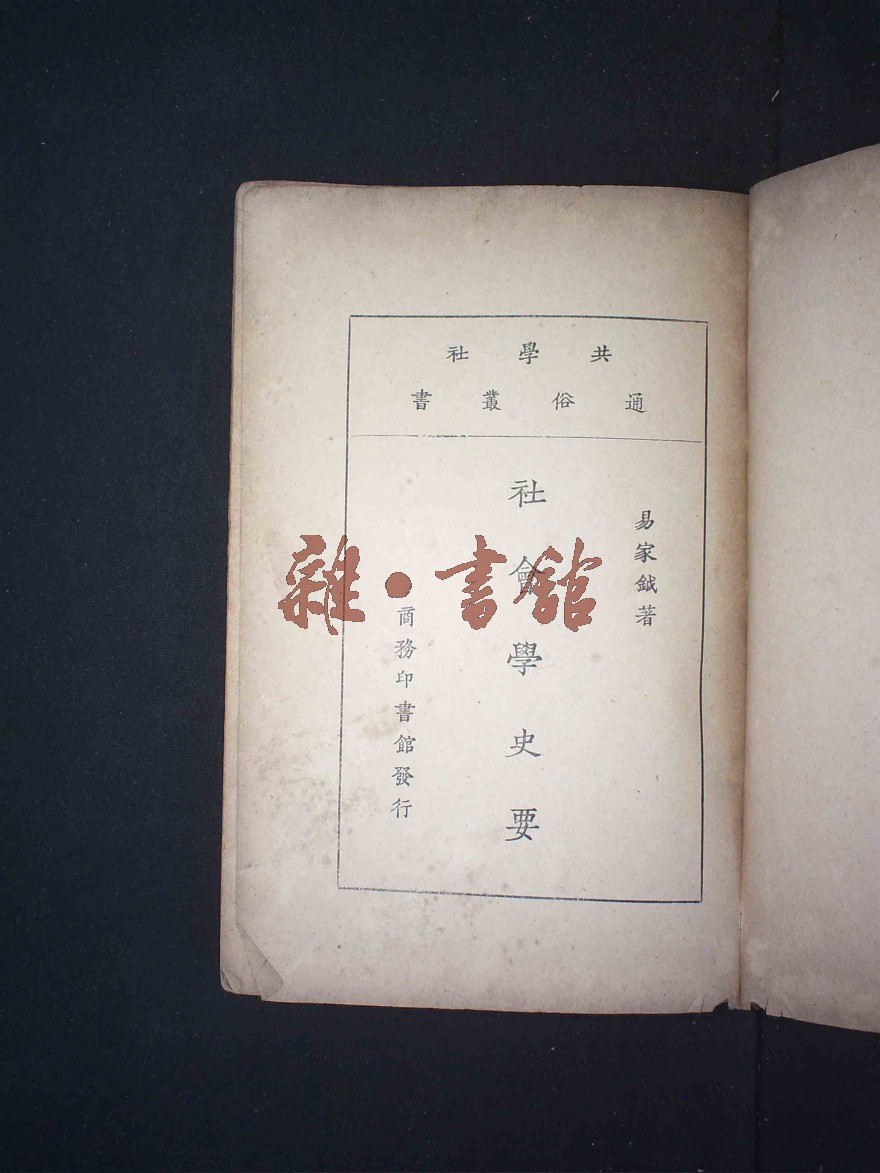 共學社
通俗叢書
易家鉞著
社會學史要
商務印書館發行
雜·書館